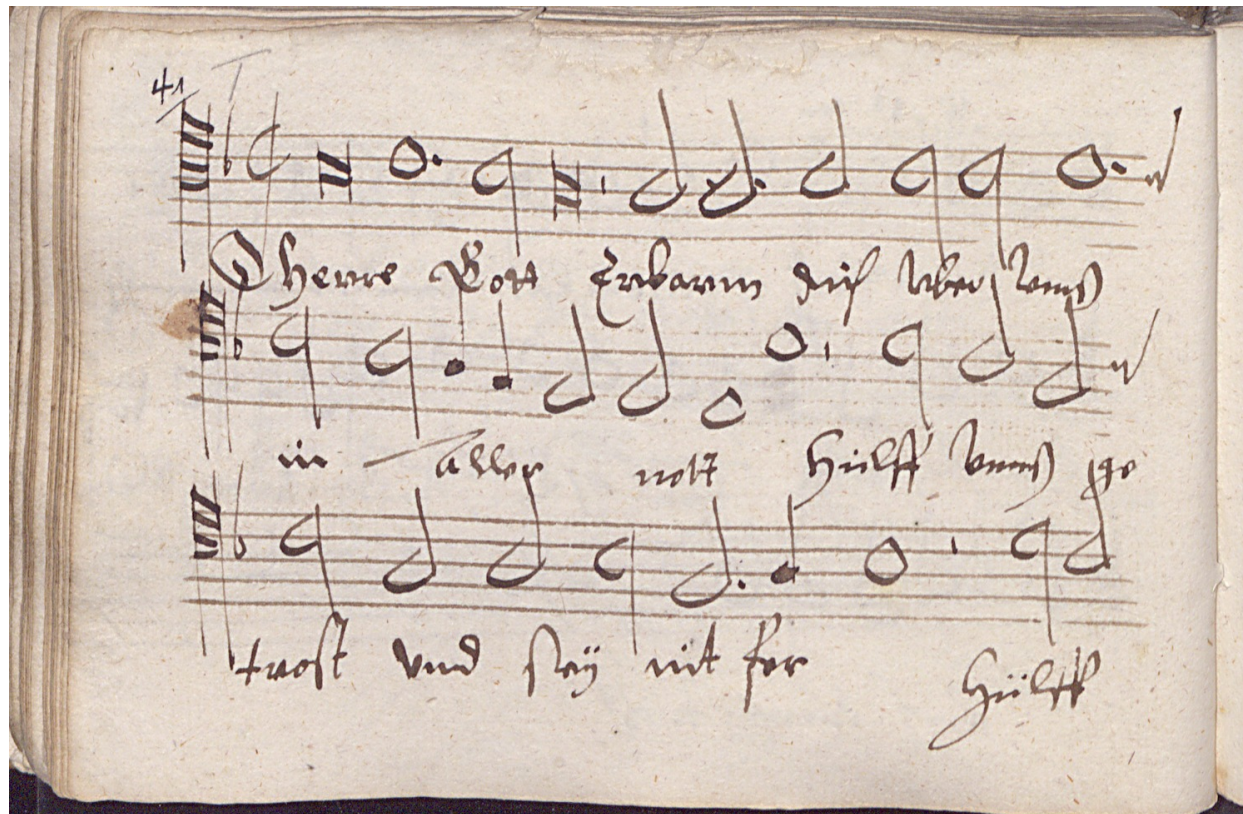 41 T
O Herre Gott Erbarm dich vber vnnß
in aller nott Hülff vnnß ge
trost vnd seÿ nit fer Hülff